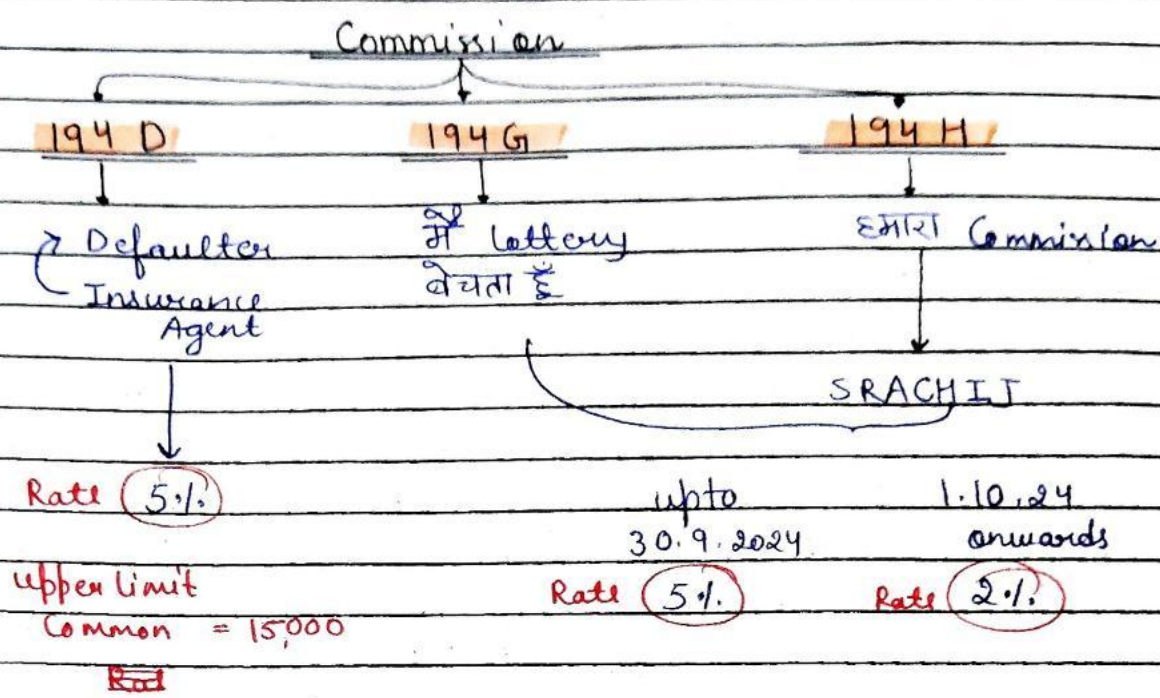 Commission
194 D
194 G
194 H
Defaulter
Insurance
Agent
मैं lottery
बेचता हूँ
हमारा Commission
SRACHIJ
Rate 5%
upto
30.9.2024
Rate 5%
1.10.24
onwards
Rate 2%
upper limit
Common = 15,000